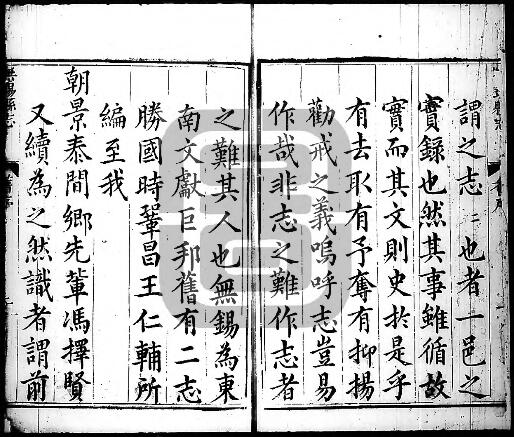 謂之志〻也者一邑之
實録也然其事雖循故
實而其文則史於是乎
有去取有予奪有抑揚
勸戒之義嗚呼志豈易
作哉非志之難作志者
之難其人也無錫為東
南文獻巨邦舊有二志
勝國時鞏昌王仁輔所
編至我
朝景泰間鄉先軰馮擇賢
又續為之然識者謂前
無錫縣志